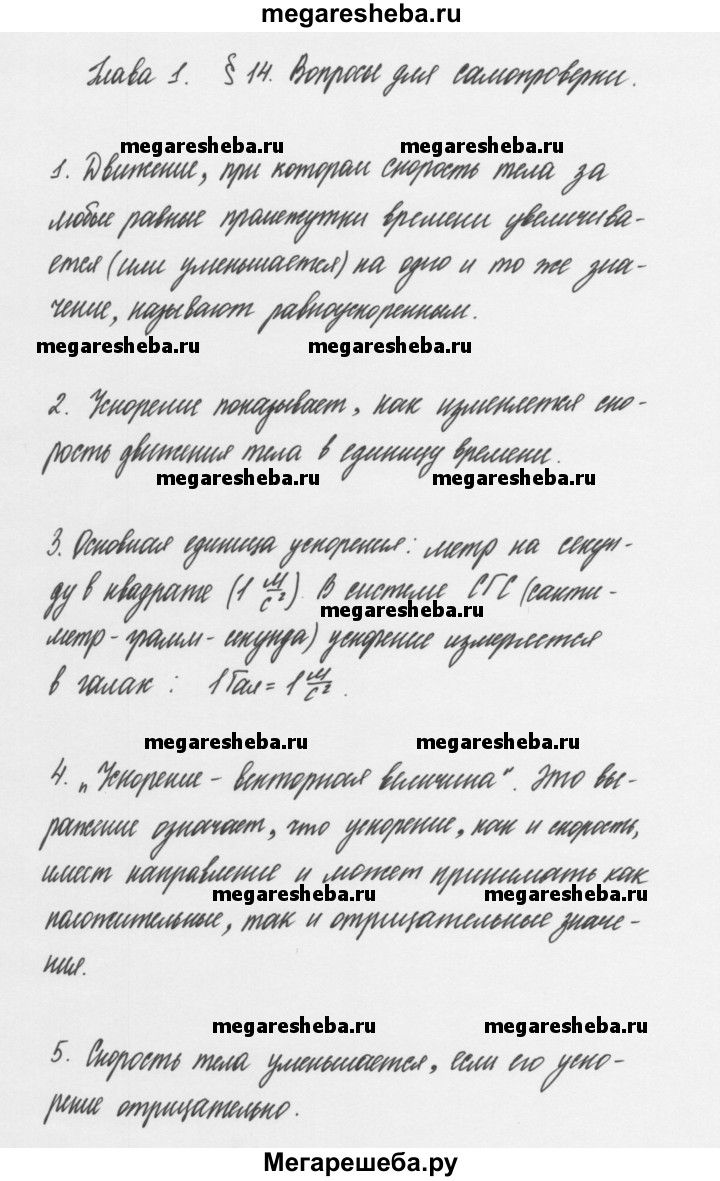 megaresheba.ru
Глава 1. § 14. Вопросы для самопроверки.
megaresheba.ru megaresheba.ru
1. Движение, при котором скорость тела за
любые равные промежутки времени увеличива-
ется (или уменьшается) на одно и то же зна-
чение, называют равноускоренным.
megaresheba.ru megaresheba.ru
2. Ускорение показывает, как изменяется ско-
рость движения тела в единицу времени.
megaresheba.ru megaresheba.ru
3. Основная единица ускорения: метр на секун-
ду в квадрате (1 м/с²). В системе СГС (санти-
megaresheba.ru
метр-грамм-секунда) ускорение измеряется
в галах: 1 Гал = 1 м/с².
megaresheba.ru megaresheba.ru
4. „Ускорение – векторная величина“. Это вы-
ражение означает, что ускорение, как и скорость,
имеет направление и может принимать как
megaresheba.ru megaresheba.ru
положительные, так и отрицательные значе-
ния.
megaresheba.ru megaresheba.ru
5. Скорость тела уменьшается, если его уско-
рение отрицательно.
Мегарешеба.ру